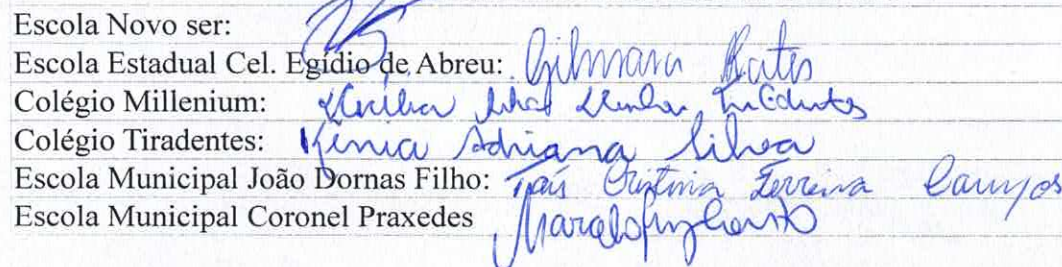 Escola Novo ser:
Escola Estadual Cel. Egídio de Abreu: Gilmara
Colégio Millenium:
Colégio Tiradentes: Kênia Adriana Silva
Escola Municipal João Dornas Filho: Taís Cristina Ferreira Campos
Escola Municipal Coronel Praxedes